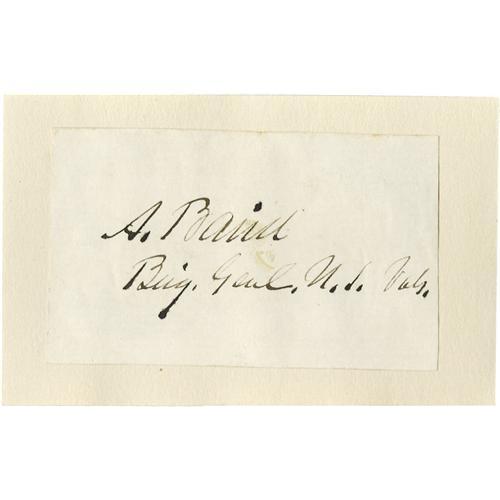 A. Baird
Brig. Genl. U.S. Vols.